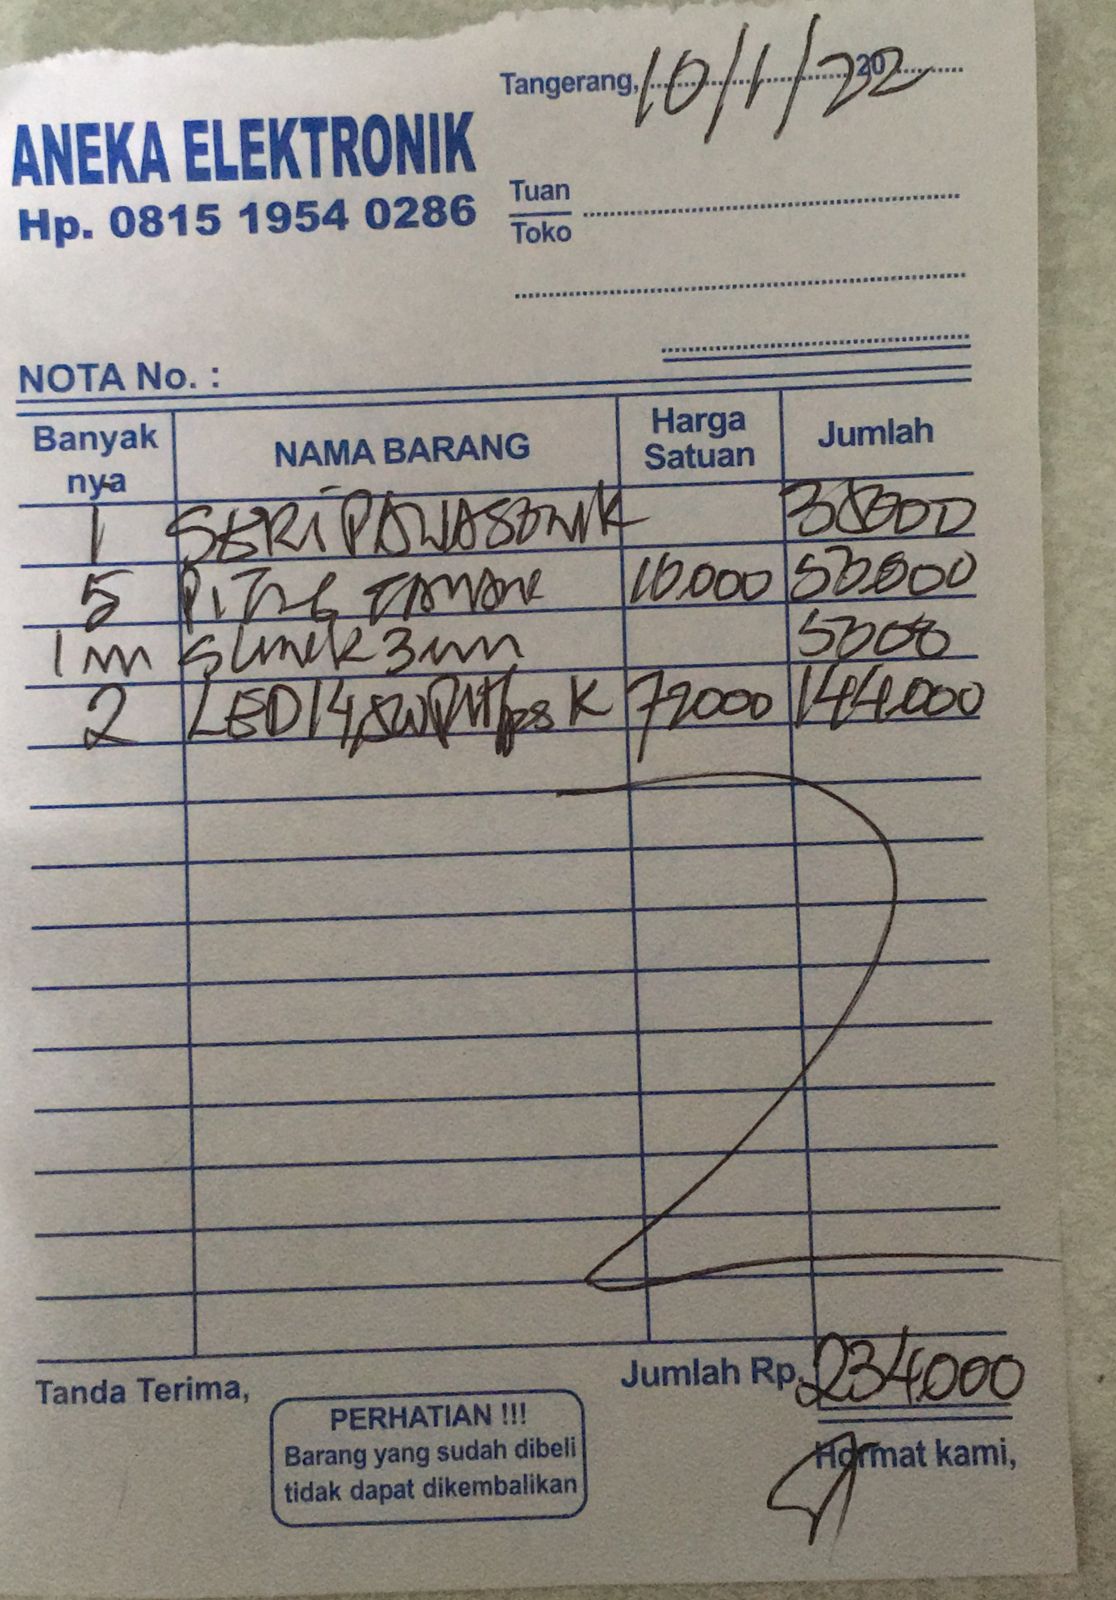 Tangerang, 10/1/22 20
ANEKA ELEKTRONIK
Hp. 0815 1954 0286
Tuan
Toko
NOTA No. :
Banyak nya NAMA BARANG Harga Satuan Jumlah
1 SERI 
5 10.000 50.000
1 m 3 mm 5000
2 LED 14,5W K 72000 144.000
Jumlah Rp. 234.000
Tanda Terima,
Hormat kami,
PERHATIAN !!!
Barang yang sudah dibeli
tidak dapat dikembalikan